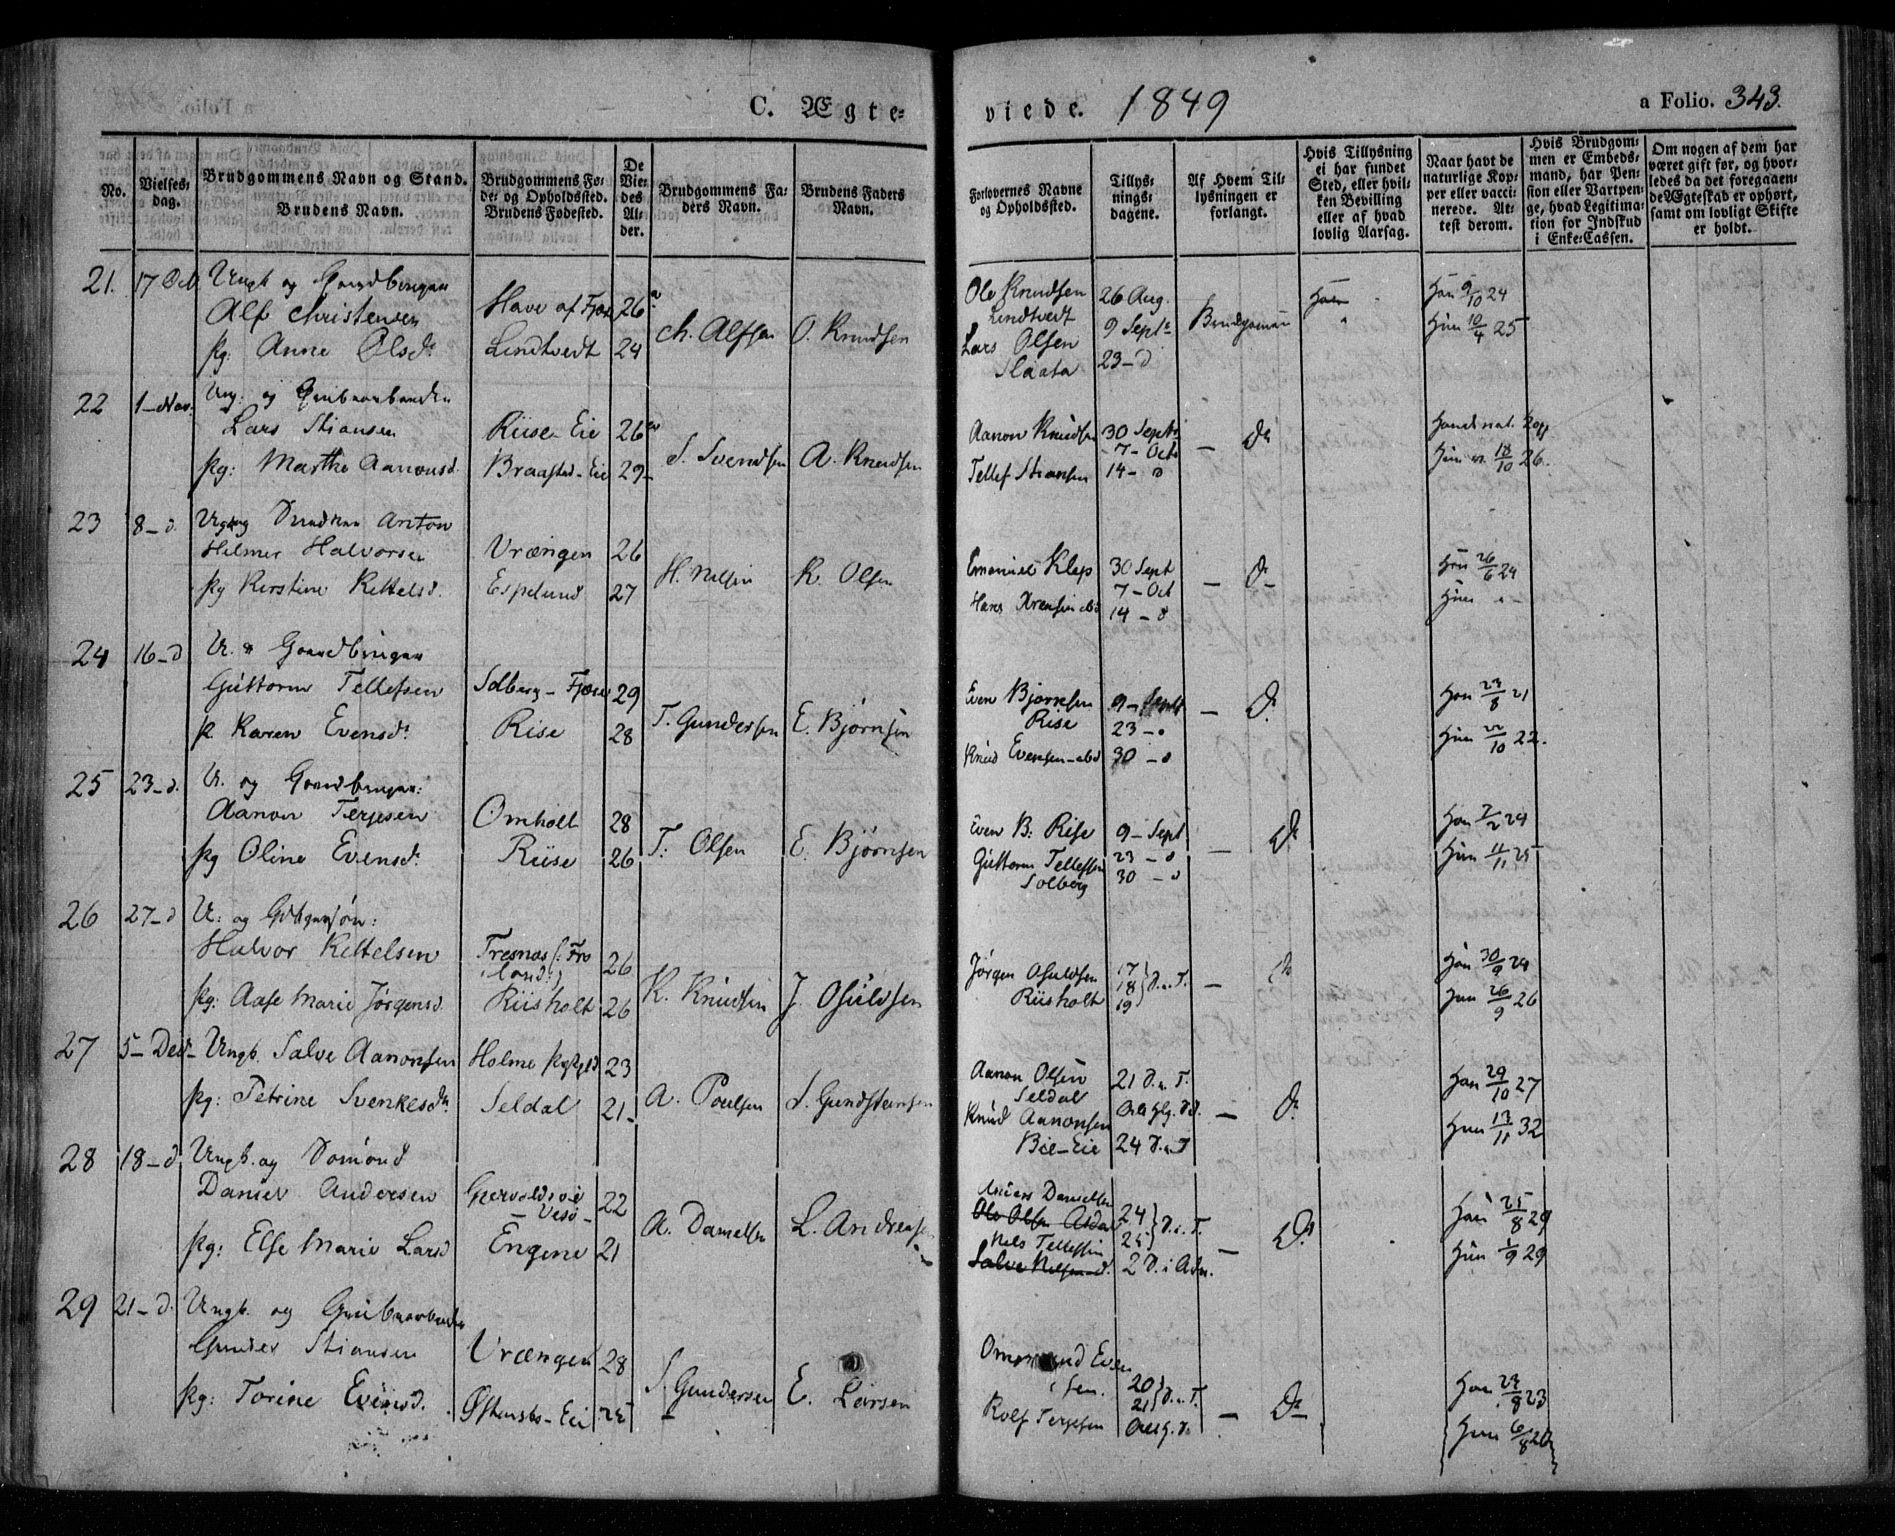 C. Ægte-
viede. 1849
a Folio. 343.
No.
Vielses-
dag.
Brudgommens Navn og Stand.
Brudens Navn.
Brudgommens Fø-
de- og Opholdssted.
Brudens Fødested.
De
Vie-
des
Al-
der.
Brudgommens Fa-
ders Navn.
Brudens Faders
Navn.
Forlovernes Navne
og Opholdssted.
Tillys-
nings-
dagene.
Af Hvem Til-
lysningen er
forlangt.
Hvis Tillysning
ei har fundet
Sted, eller hvil-
ken Bevilling
eller af hvad
lovlig Aarsag.
Naar havt de
naturlige Kop-
per eller vacci-
nerede. At-
test derom.
Hvis Brudgom-
men er Embeds-
mand, har Pen-
sion eller Vartpen-
ge, hvad Legitima-
tion for Indskud
i Enke-Cassen.
Om nogen af dem har
været gift før, og hvor-
ledes da det foregaaen-
de Ægteskab er ophørt,
samt om lovligt Skifte
er holdt.
21. 17 Oct. Ungk og
Alf Christensen Have af Fjære 26
Pg: Anne Olsd. Lindtvedt 24
Ch. Alfsen O. Knudsen
Ole Knudsen 26 Aug.
Lindtvedt 9 Sept.
Lars Olsen 23 - d
Slaata
Brudgommen
Han 9/10 24
Hun 10/4 25
22 1 - Nov. Ung: og
Lars Stiansen Riise Eie 26
Pg: Marthe Aanonsd. Braastad - Eie 29 -
S. Svendsen A. Knudsen
Aanon Knudsen 30 Sept
7 - Oct
Tellef Stiansen 14 - d
- D
Hun v. 18/10 26.
23 8 - d. Ungk og Anton
Hilmer Halvorsen Vrængen 26
Pg Kerstine Kittelsd. Espelund 27
H. Nilsen K. Olsen
Emanuel Klep 30 Sept
7 - Oct
14 - d
- D -
Han 26/6 24
Hun
24 16 - d U. &
Guttorm Tellefsen Solberg - Fjære 29
P. Karen Evensd. Rise 28
T. Gundersen E. Bjørnsen
Even Bjørnsen 9 - Sept
Rise 23 - d
Knud Evensen - ibd 30 - d
- D.
Han 23/8 21
Hun 22/10 22.
25 23 - d. U. og
Aanon Terjesen Omholt 28
Pg Oline Evensd. Riise 26
T. Olsen E. Bjørnsen
Even B: Rise 9 - Sept
Guttorm Tellefsen 23 - d
Solberg 30 - d
- D
Han 7/2 24
Hun 11/11 25
26 27 - d U: og
Halvor Kittelsen Tresnæs (: Fro
land :) 26
Pg: Aase Marie Jørgensd. Riisholt 26
K. Knudsen J. Osuldsen
Jørgen Osuldsen 17
Riisholt 18 } D. n. T.
19
- D
Han 30/9 24
Hun 26/9 26
27 5 - Dec - Ungk. Salve Aanonsen Holme 23
Pg: Petrine Svenkesd. Seldal 21 -
A. Poulsen S. Gundstensen
Aanon Olsen 21 D. n. T.
Seldal
Knud Aanonsen
Bie - Eie 24 D. n. T
- D.
Han 29/10 27
Hun 13/11 32
28 18 - d Ungk. og Sømand
Daniel Andersen 22
Pg: Else Marie Larsd Engene 21
A. Danielsen L. Andreasen
Anders Danielsen 24
Ole Olsen 25 } D. i. T.
Nils Tellefsen
2 D. i Adv.
- D.
Han 25/8 29
Hun 1/9 29
29 21 - d. Ungk. og
Gunder Stiansen Vrængen 28
Pg: Torine Evensd. Østensbo - Eie 25
S. Gundersen E. Larsen
Omund Even
sen. 20
21 } D. n. T.
Rolf Terjesen
- D -
Han 23/8 23
Hun 6/8 26